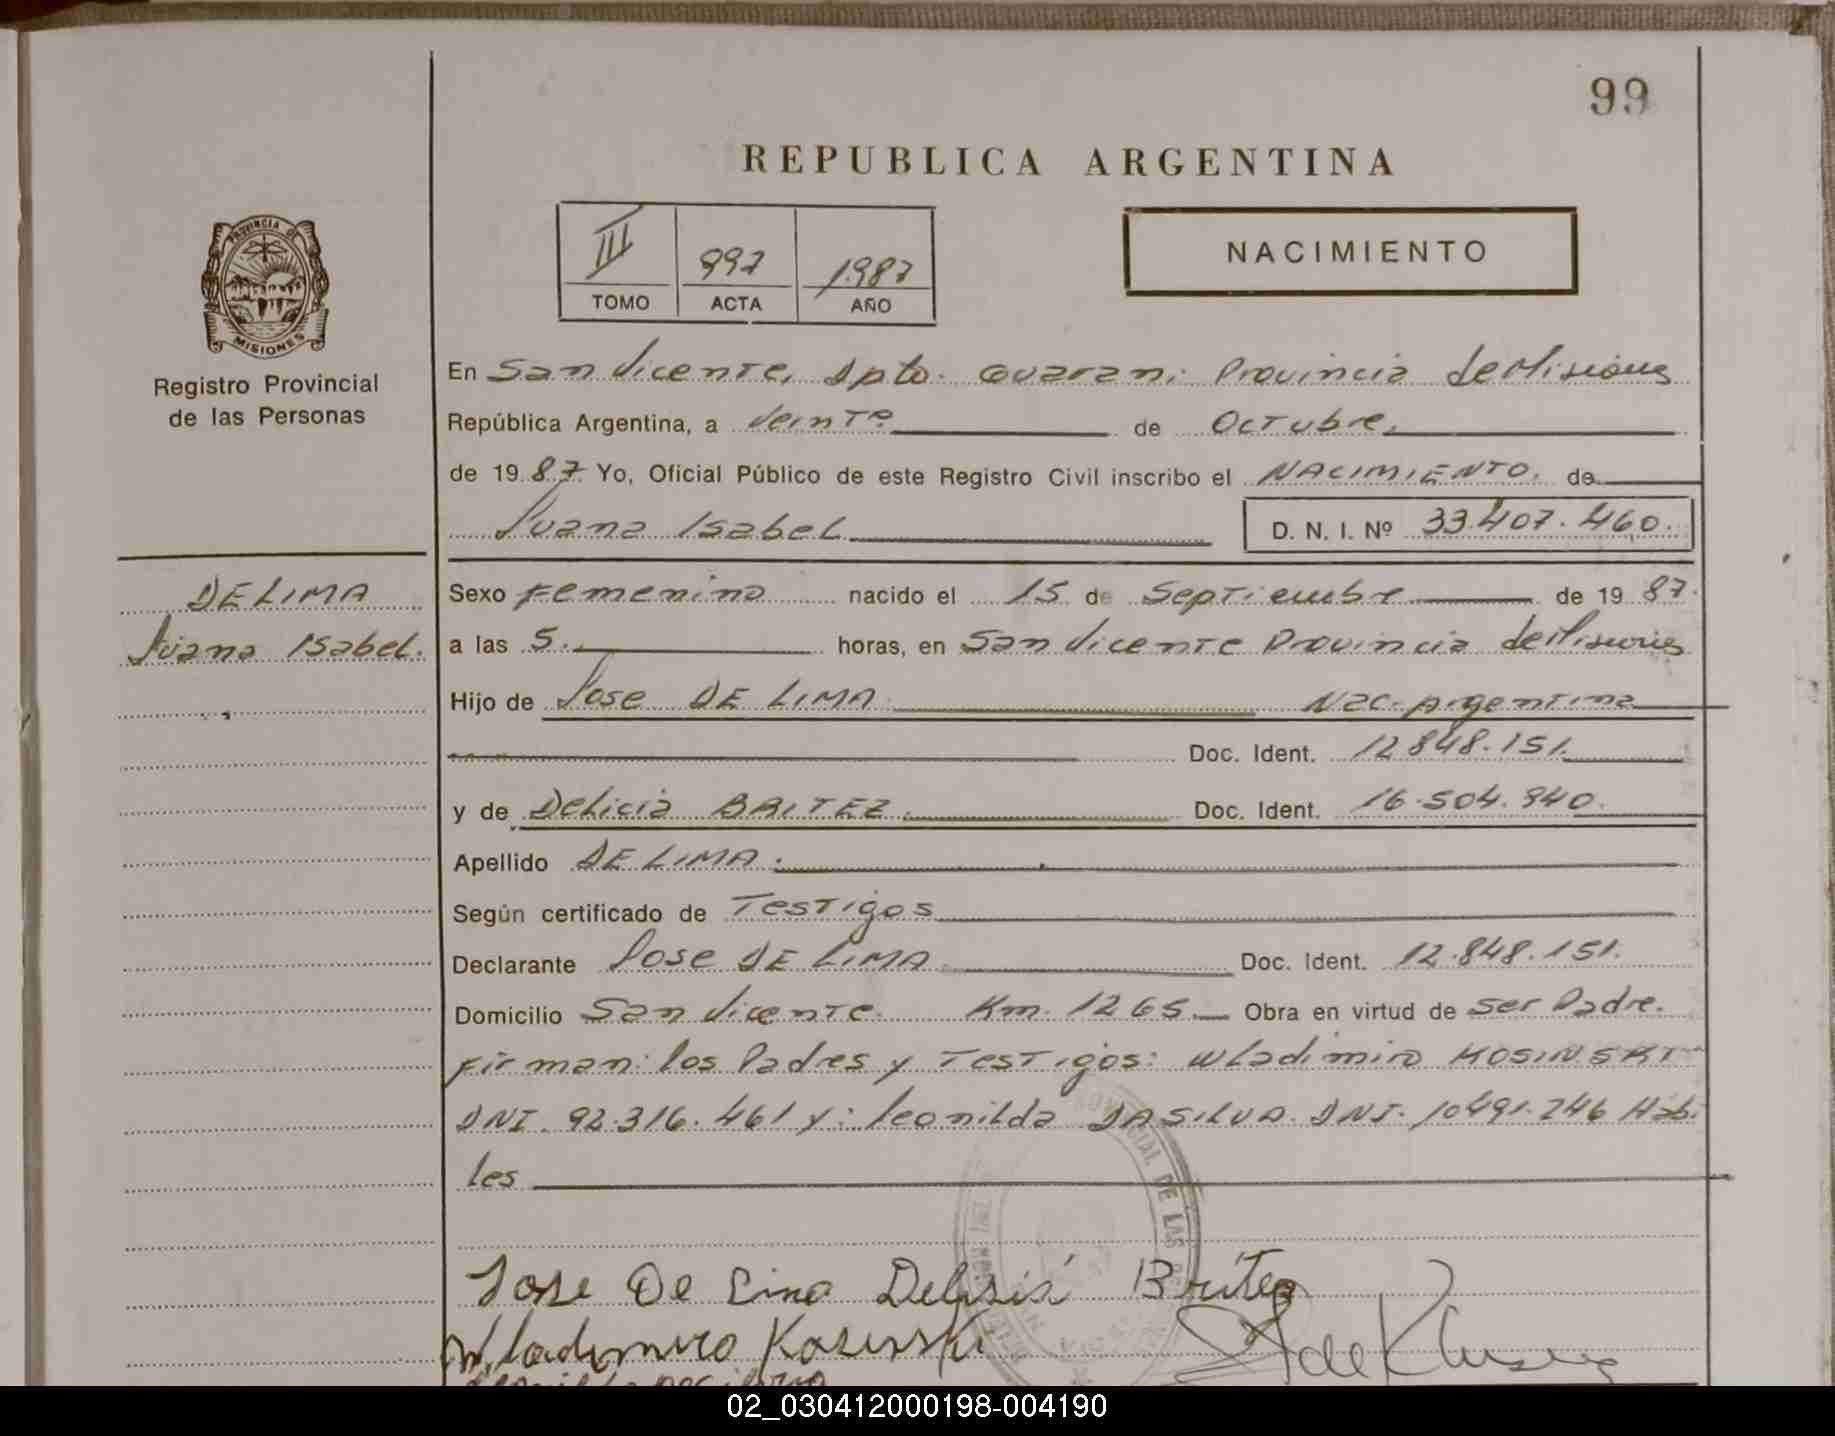 99
REPUBLICA ARGENTINA
PROVINCIA DE
MISIONES
Registro Provincial
de las Personas
III 997 1987
TOMO ACTA AÑO
NACIMIENTO
En San Vicente, Dpto. Guarani Provincia de Misiones
República Argentina, a Veinte de Octubre.
de 1987. Yo, Oficial Público de este Registro Civil inscribo el NACIMIENTO. de
Juana Isabel D. N. I. Nº 33.407.460.
DE LIMA
Juana Isabel.
Sexo Femenino nacido el 15 de Septiembre de 1987.
a las 5. horas, en San Vicente Provincia de Misiones
Hijo de Jose DE LIMA. Nac. Argentina
Doc. Ident. 12.848.151.
y de Delicia BRITEZ. Doc. Ident. 16.504.940.
Apellido DE LIMA.
Según certificado de Testigos
Declarante Jose DE LIMA Doc. Ident. 12.848.151.
Domicilio San Vicente. Km. 1265. Obra en virtud de ser Padre.
Firman: los Padres y Testigos: Wladimiro KOSINSKI
DNI. 92.316.461 y: leonilda DASILVA. DNI. 10.491.246 Hábi
les
Jose De Lima Delisia Britez
Wladimiro Kosinski
02_030412000198-004190